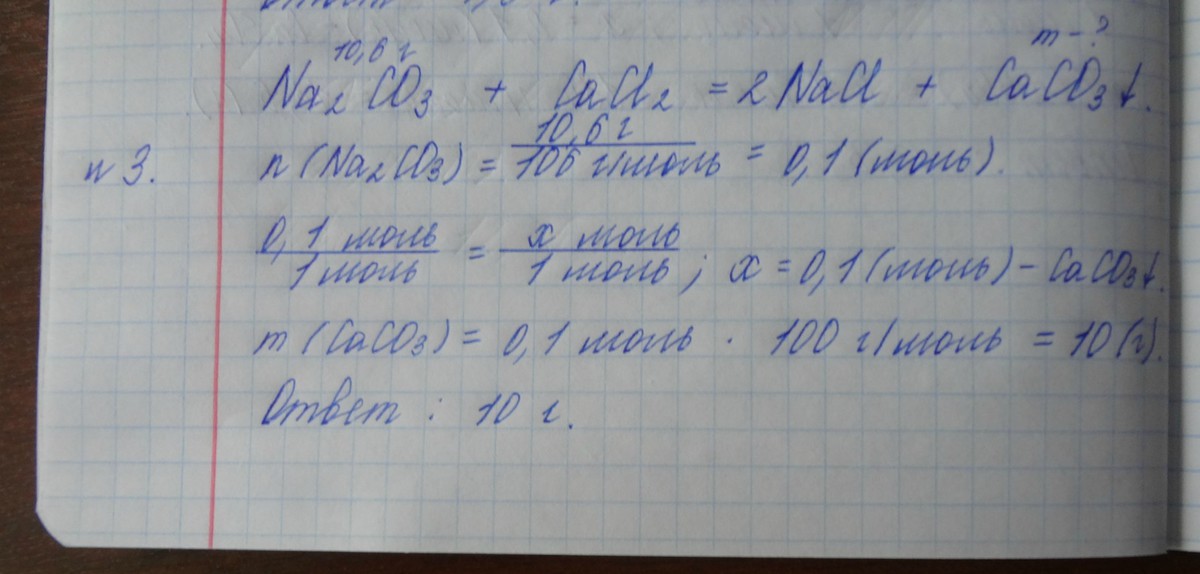 10,6 г m - ?
Na₂CO₃ + CaCl₂ = 2 NaCl + CaCO₃↓.
n 3. n (Na₂CO₃) = 10,6 г / 106 г/моль = 0,1 (моль).
0,1 моль / 1 моль = x моль / 1 моль ; x = 0,1 (моль) - CaCO₃↓.
m (CaCO₃) = 0,1 моль · 100 г/моль = 10 (г).
Ответ : 10 г.